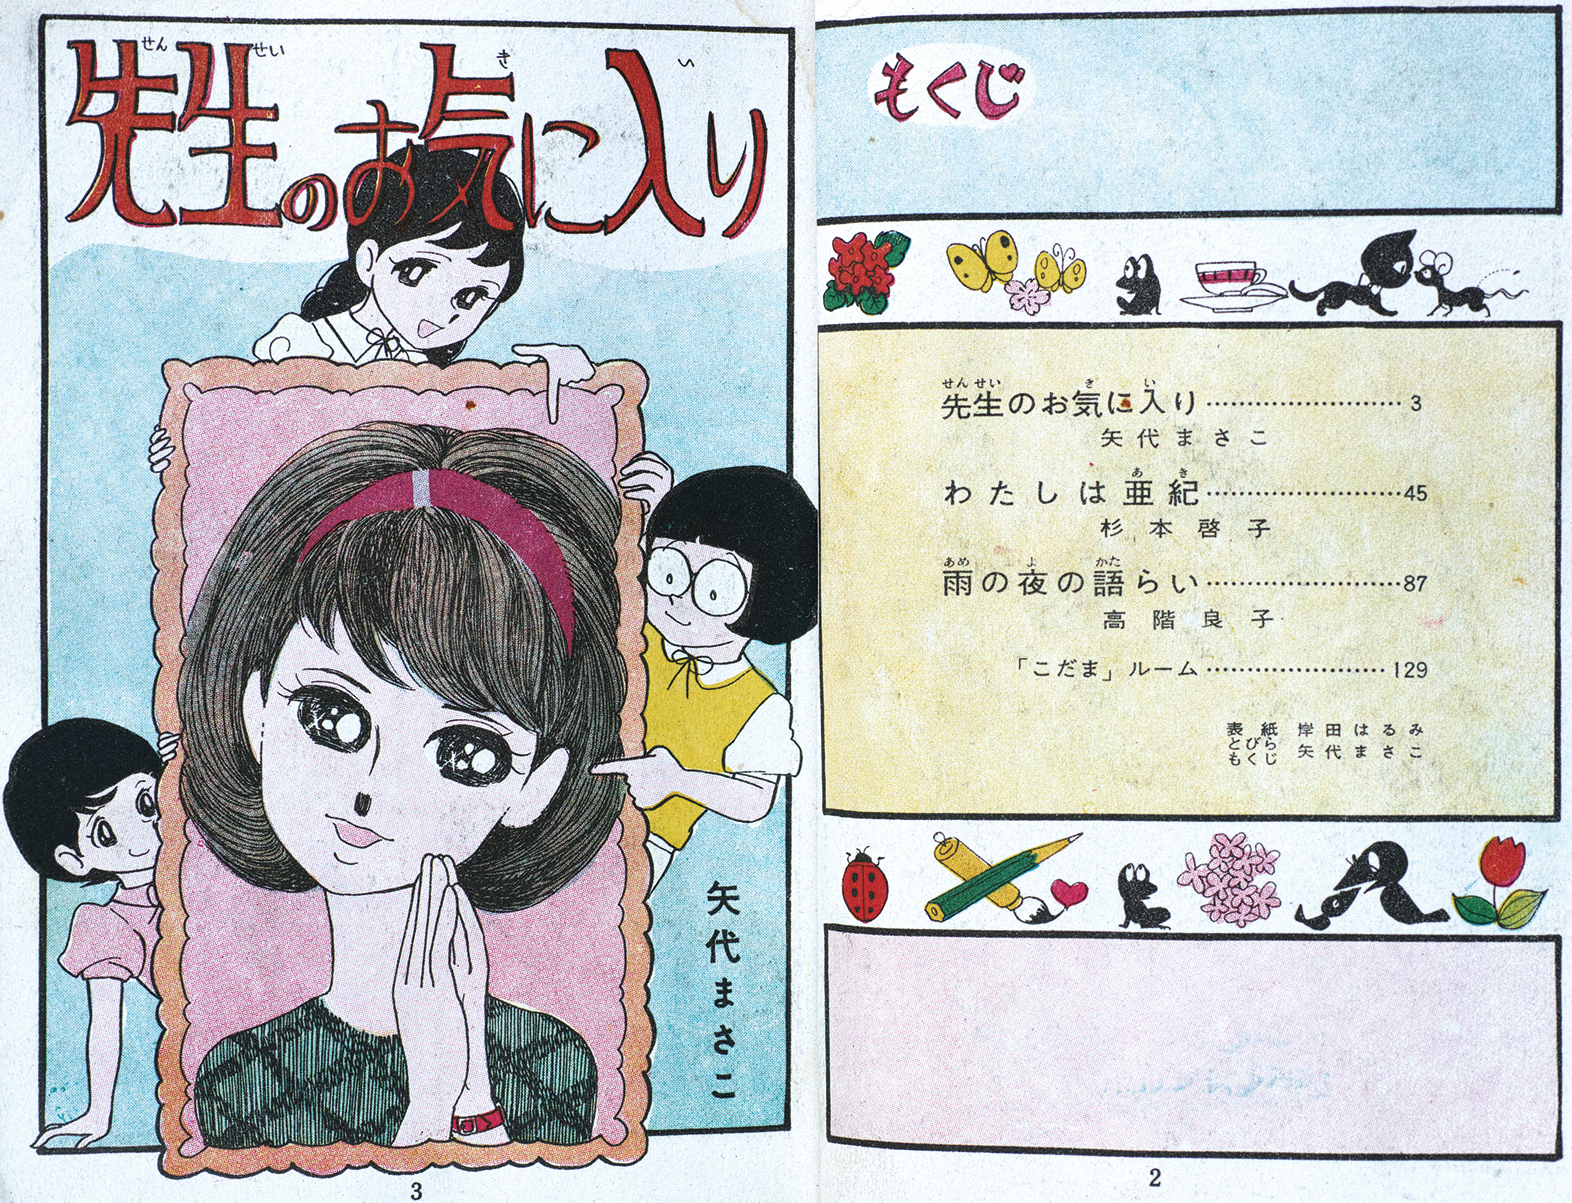 もくじ
先生のお気に入り……………………3
矢代まさこ
わたしは亜紀……………………45
杉本啓子
雨の夜の語らい……………………87
高階良子
「こだま」ルーム……………………129
表紙 岸田はるみ
とびら
もくじ 矢代まさこ
2
先生のお気に入り
矢代まさこ
3